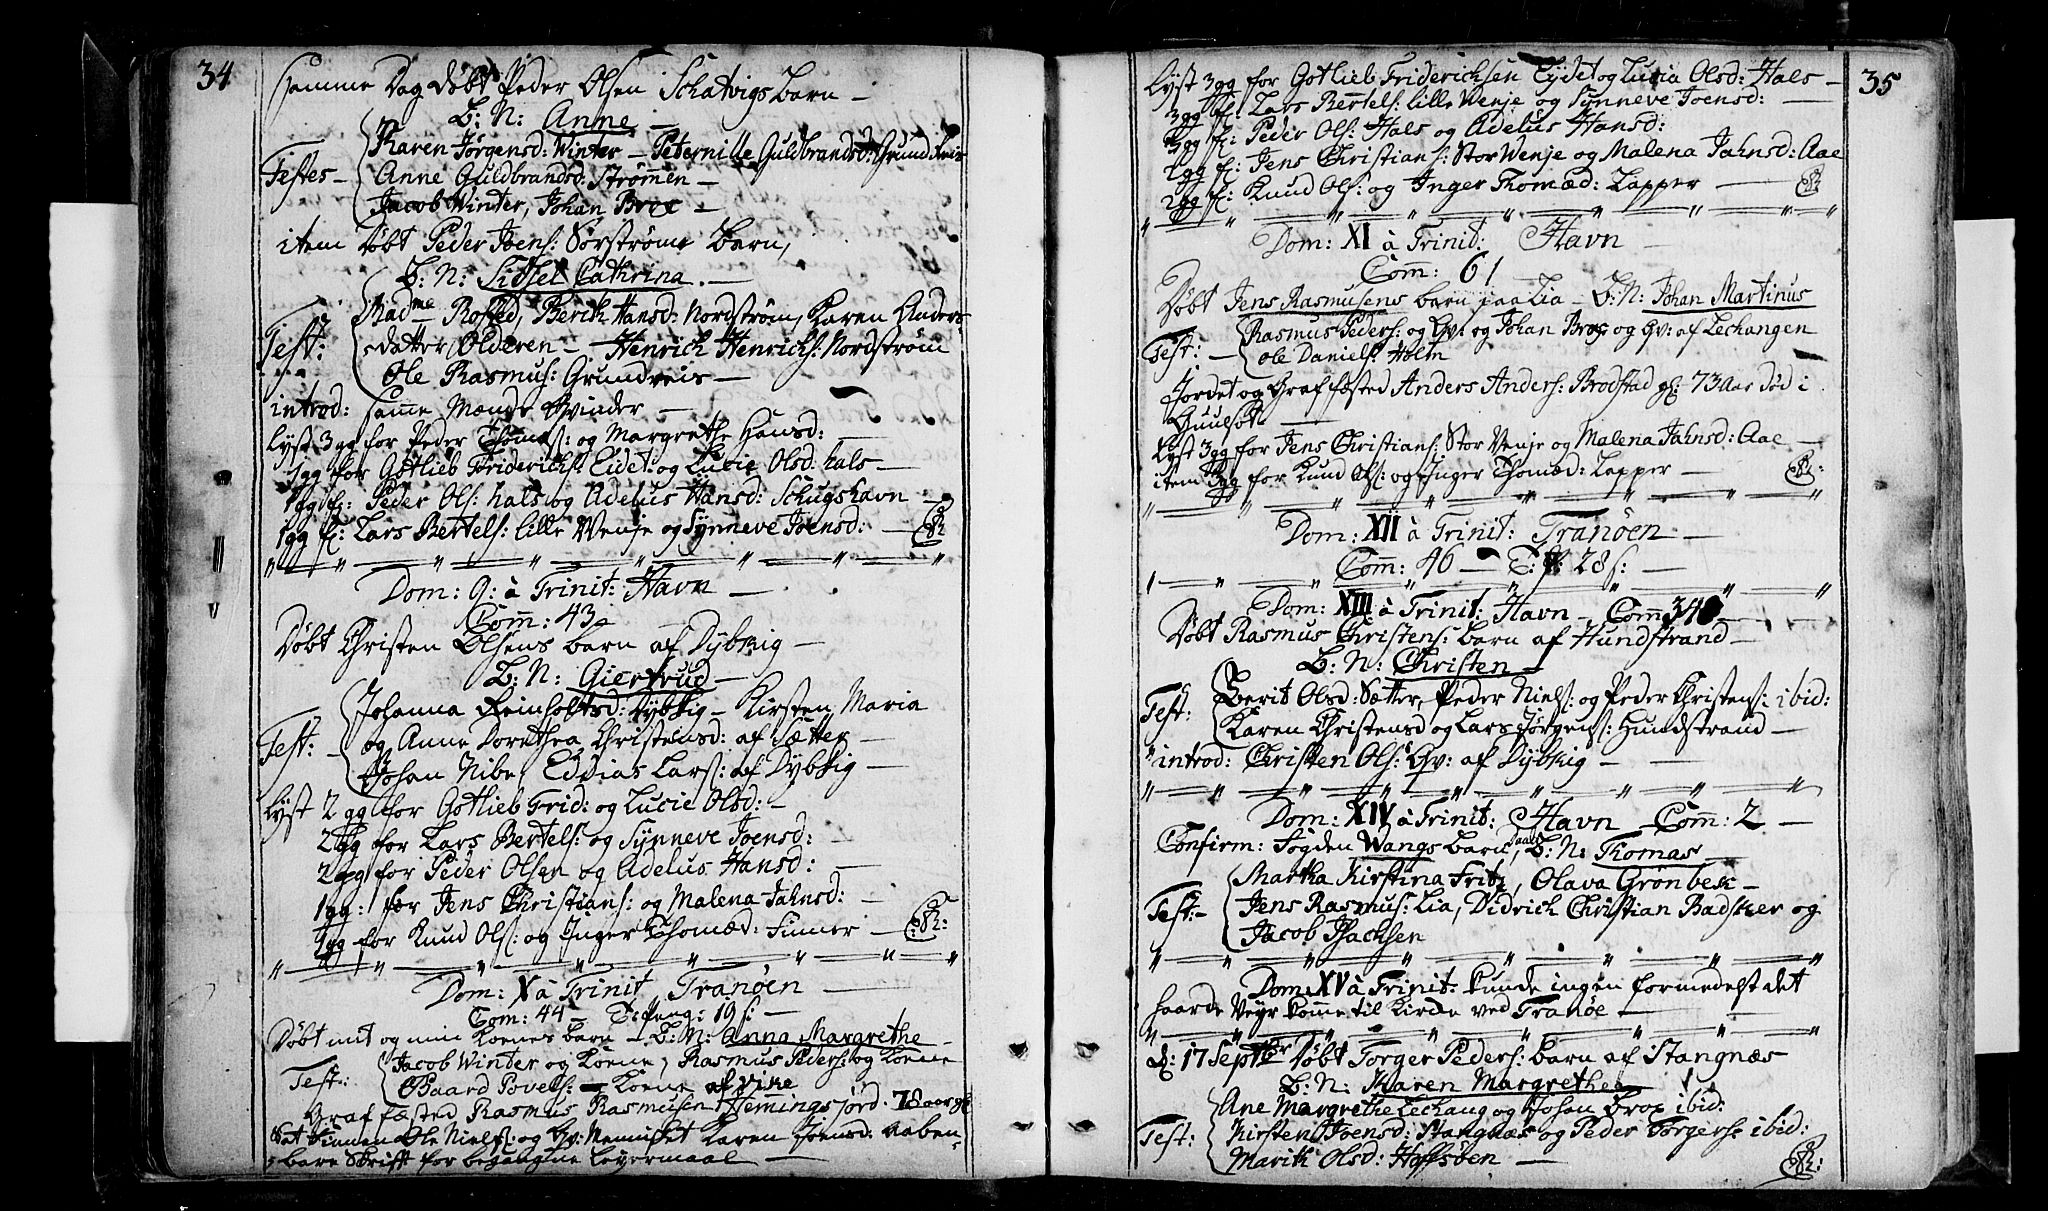 34
Samme Dag Døbt Peder Olsen Schatvigs Barn –
B: N: Anne –
Karen Jørgensd: Winter – Peternille Guldbrandsd: Grundreis
Testes – Anne Guldbrandsd: Strømmen –
Jacob Winter, Johan Brox –
item Døbt Peder Joens: Sørstrøms Barn,
B: N: Sidsel Cathrina. –
Madme Rosted, Berith Hansd: Nordstrøm, Karen Anders
Test: datter Olderen – Henrich Henrichs: Nordstrøm
Ole Rasmus: Grundreis –
introd: samme Mænds Qvinder –
lyst 3gg for Peder Thomæs: og Margrethe Hansd:
1gg for Gotlieb Friderichs: Eidet: og Lucie Olsd: hals –
1gg f: Peder Ols: hals og Adelus Hansd: Schugshavn –
1gg f: Lars Bertels: lille Wenje og Synneve Joensd: –
Dom: 9: à Trinit: Havn –
Comm: 43
Døbt Christen Olsens barn af Dybvig –
B: N: Giertrud –
Johanna Reinholtsd: Dybvig – Kirsten Maria
og Anne Dorothea Christensd: af Sætter –
Test: – Johan Nibe, Eddias Lars: af Dybvig –
lyst 2 gg for Gotlieb Frid: og Lucie Olsd: –
2gg for Lars Bertels: og Synneve Joensd:
2gg for Peder Olsen og Adelus Hansd: –
1gg: for Jens Christians: og Malena Jahnsd: –
1gg for Knud Ols: og Inger Thomæd: Finner –
Dom: X à Trinit Tranöen –
Com: 44 – T: Peng: 19 s: –
Døbt mit og min Koenes barn – B: N: Anna Margrethe –
Test: Jacob Winter og Koene, Rasmus Peders: og Koene
Baard Povels: – Koene af Vike
Graf fæsted Rasmus Rasmusen Hemmingsjord. 78 aar gl
Sat Finnen Ole Niels: og Qv: Mennisket Karen Joensd: aaben-
bare Skrift for begangne Leyermaal –
35
lyst 3gg for Gotlieb Friderichsen Eydet og Lucia Olsd: Hals –
3gg f: Lars Bertels: lille Wenje og Synneve Joensd: –
3gg f: Peder Ols: Hals og Adelus Hansd:
2gg f: Jens Christians: Stor Wenje og Malena Jahnsd: Aae
2gg f: Knud Ols: og Inger Thomæd: Lapper –
Dom: XI à Trinit: Havn –
Comm: 61
Døbt Jens Rasmusens barn paa Lia – B: N: Johan Martinus
Rasmus Peders: og Qv: og Johan Brox og Qv: af Lechangen
Test: – Ole Daniels: Holm
Jordet og Graffæsted Anders Anders: Brodstad gl: 73 Aar Død i
Guulsot –
lyst 3gg for Jens Christians: Stor Venje og Malena Jahnsd: Aae –
item 3gg for Knud Ols: og Inger Thomæd: Lapper –
Dom: XII à Trinit: Tranöen –
Comm: 46 – T: P: 28 s: –
Dom: XIII à Trinit: Havn – Comm 34
Døbt Rasmus Christens: barn af Hundstrand –
B: N: Christen –
Berit Olsd: Sætter, Peder Niels: og Peder Christens: ibid:
Test: Karen Christensd og Lars Jørgens: Hundstrand –
introd: Christen Ols: Qv: af Dybvig –
Dom: XIV à Trinit: Havn – Comm: 2 –
Confirm: Sogden Wangs barn, B: N: Thomas
Martha Kirstina Fritz, Olava Grönbek –
Test: – Jens Rasmus: Lia, Didrich Christian Badsker og
Jacob Isachsen
Dom: XV à Trinit: kunde ingen formedelst det
haarde Veyr komme til Kirke ved Tranöe –
d: 17 Septbr Døbt Torger Peders: barn af Stangnæs
B: N: Karen Margrethe
Ane Margrethe Lechang og Johan Brox ibid:
Test: Kirsten Joensd: Stangnæs og Peder Torgers: ibid:
Marith Olsd: Hoffsben –